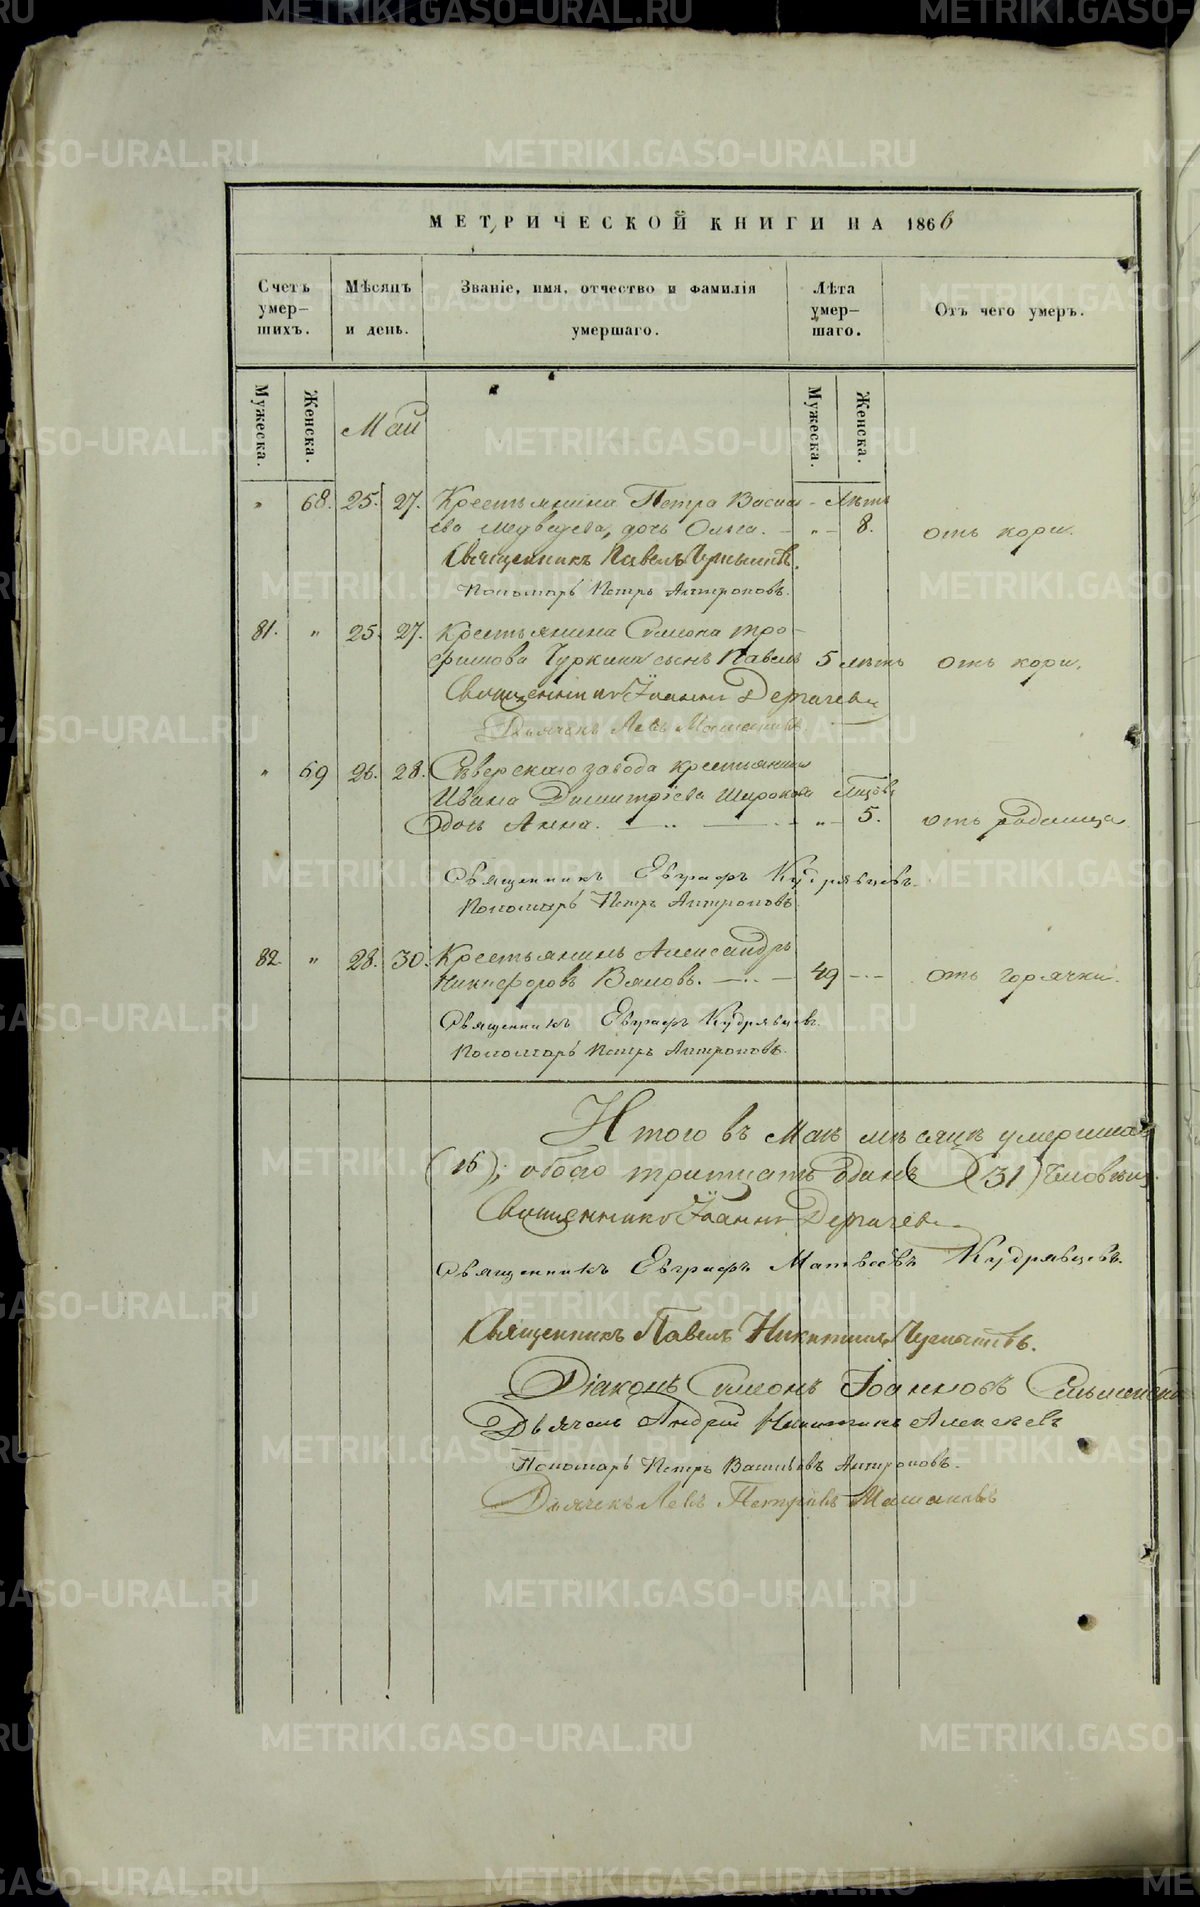 МЕТРИЧЕСКОЙ КНИГИ НА 1866
Счетъ умер-
шихъ.
Мѣсяцъ
и день.
Званіе, имя, отчество и фамилія
умершаго.
Лѣта
умер-
шаго.
Отъ чего умеръ.
Мужеска.
Женска.
Май
Мужеска.
Женска.
„ 68. 25. 27. Крестьянина Петра Василь- Лѣтъ
ева Медведева, дочь Ольга. — „ — 8. отъ кори.
Священникъ Павелъ
Пономарь Петръ Антроповъ.
81. „ 25. 27. Крестьянина Симеона Тро-
фимова Чуркина сынъ Павелъ 5 лѣтъ отъ кори.
Священникъ Іоаннъ Дергачевъ
Дьячекъ Левъ
„ 69 26. 28. Сѣверскаго завода крестьянина
Ивана Димитріева Широкова
дочь Анна. — „ — „ — 5. отъ родимца
Священникъ Евграфъ Кудрявцевъ.
Пономарь Петръ Антроповъ.
82. „ 28. 30. Крестьянинъ Александръ
Никифоровъ Вяловъ. — 49 — отъ горячки.
Священникъ Евграфъ Кудрявцевъ.
Пономарь Петръ Антроповъ.
Итого въ Маѣ мѣсяцѣ умершихъ
(16); обоего тритцать одинъ (31) человѣкъ.
Священникъ Іоаннъ Дергачевъ
Священникъ Евграфъ Матвѣевъ Кудрявцевъ.
Священникъ Павелъ Никитинъ
Діаконъ Симеонъ Іоанновъ
Дьячекъ Андрей Никитинъ Алексеевъ
Пономарь Петръ Васильевъ Антроповъ.
Дьячекъ Левъ Петровъ
METRIKI.GASO-URAL.RU